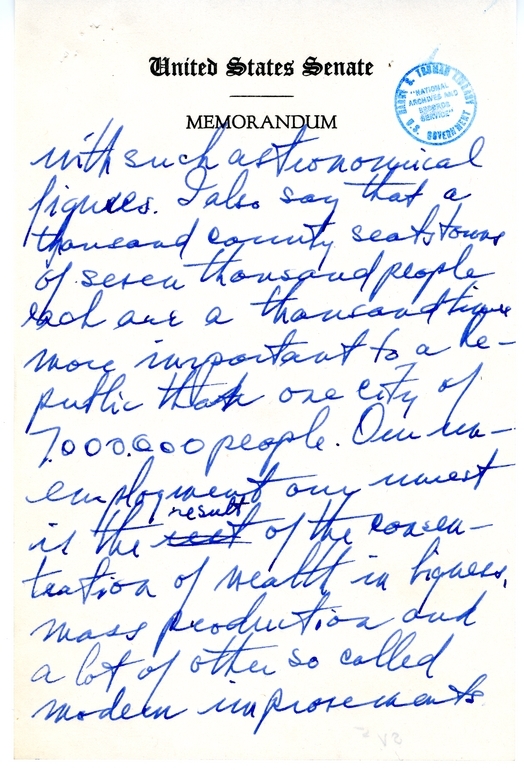 United States Senate
MEMORANDUM
HARRY S. TRUMAN LIBRARY
"NATIONAL
ARCHIVES AND
RECORDS
SERVICE"
U.S. GOVERNMENT
with such astronomical
figures. I also say that a
thousand county seats towns
of seven thousand people
each are a thousand times
more important to a re-
public than one city of
7,000,000 people. Our un-
employment our unrest
result
is the of the concen-
tration of wealth in
mass production and
a lot of other so called
modern improvements.